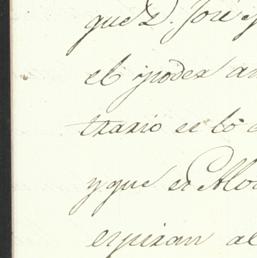 que D. José
el poder
trario es lo
y que es
espiran al